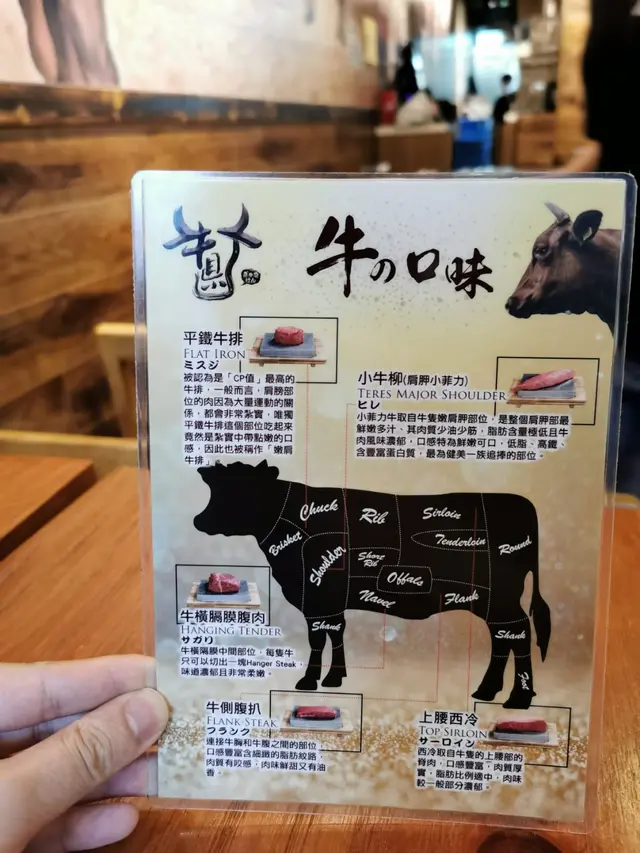 牛の口味
平鐵牛排
FLAT IRON
ミスジ
被認為是「CP值」最高的
牛排，一般而言，肩膀部
位的肉因為大量運動的關
係，都會非常紮實，唯獨
平鐵牛排這個部位吃起來
竟然是紮實中帶點嫩的口
感，因此也被稱作「嫩肩
牛排」。
小牛柳(肩胛小菲力)
TERES MAJOR SHOULDER
ヒレ
小菲牛取自牛隻嫩肩胛部位，是整個肩胛部最
鮮嫩多汁、其肉質少油少筋，脂肪含量極低且牛
肉風味濃郁，口感特為鮮嫩可口，低脂、高鐵
含豐富蛋白質，最為健美一族追捧的部位。
Chuck
Rib
Sirloin
Tenderloin
Round
Brisket
Shoulder
Short
Rib
Offals
Navel
Flank
Shank
Shank
Foot
牛橫膈膜腹肉
HANGING TENDER
サガリ
牛橫膈膜中間部位，每隻牛
只可以切出一塊Hanger Steak，
味道濃郁且非常柔嫩。
牛側腹扒
FLANK STEAK
フランク
連接牛胸和牛腹之間的部位，
口感豐富含細緻的脂肪紋路，
肉質有咬感，肉味鮮甜又有油
香。
上腰西冷
TOP SIRLOIN
サーロイン
西冷取自牛隻的上腰部的
脊肉，口感豐富，肉質厚
實，脂肪比例適中，肉味
較一般部分濃郁。